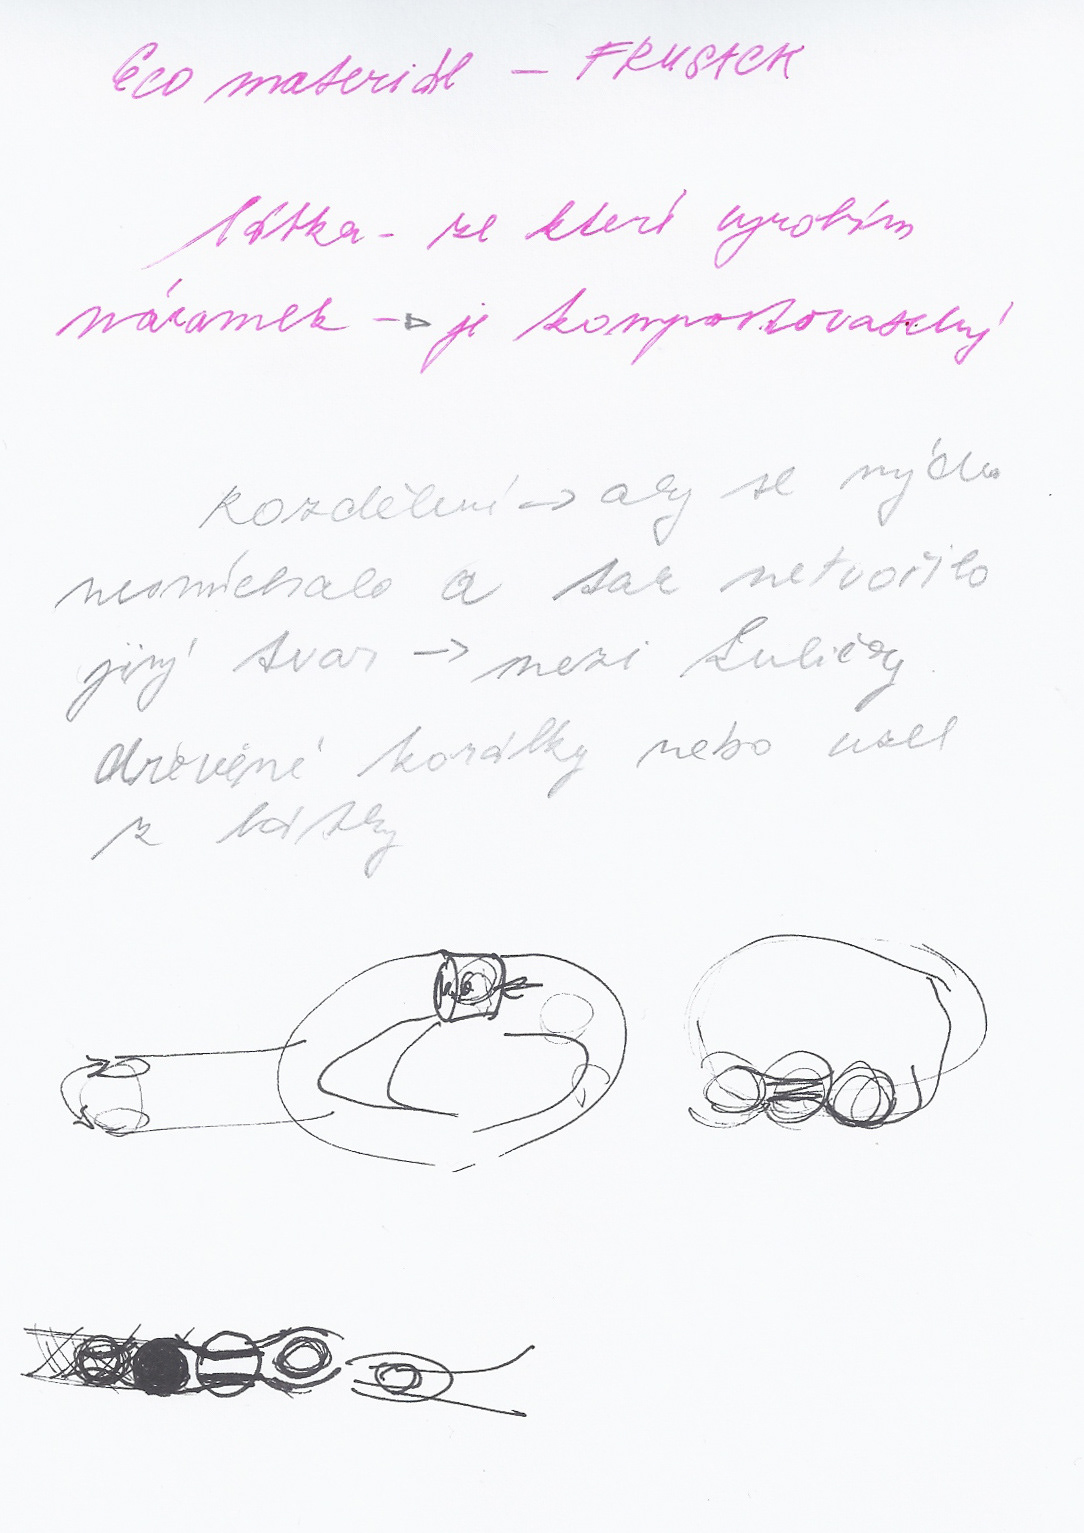 Eco materiál –
látka - ze které vyrobím
náramek → je kompostovatelný
Rozdělení → aby se mýdlo
nesmíchalo a tak netvořilo
jiný tvar → mezi kuličky
dřevěné korálky nebo uzel
z látky